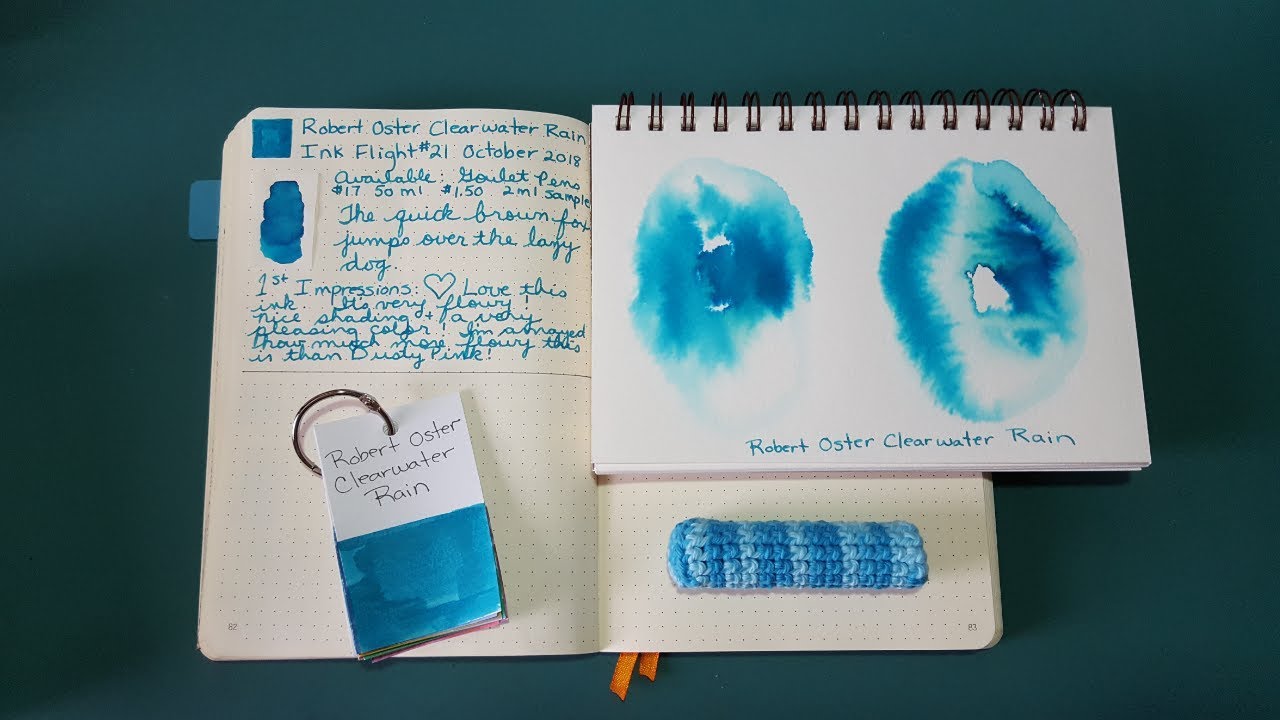 Robert Oster Clearwater Rain
Ink Flight #21 October 2018
Available: Goulet Pens
$17 50 ml $1.50 2ml sample
The quick brown fox
jumps over the lazy
dog.
1st Impressions: ♡ Love this
ink. It's very flowy!
nice shading + a very
pleasing color! I'm amazed
how much more flowy this
is than Dusty Pink!
Robert Oster
Clearwater
Rain
Robert Oster Clearwater Rain
82
83